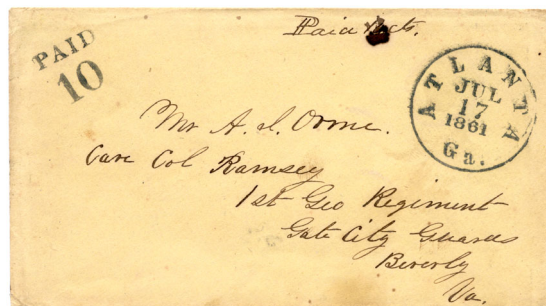 PAID
10
Paid cts.
ATLANTA
JUL
17
1861
Ga.
Mr A. J. Orme.
Care Col Ramsey
1st Geo Regiment
Gate City Guards
Beverly
Va.